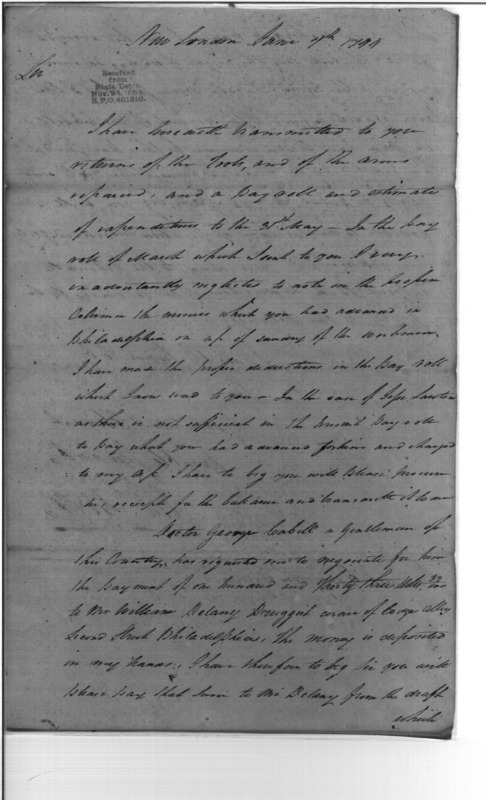 New London June 7th 1794
Sir
Received
from
State Dep't.
Nov. 24, 1894
R.P.O. 401210.
I have herewith transmitted to you
returns of the Tools, and of the arms
repaired, and a Pay roll and estimate
of expenditures to the 31st May – In the Pay
roll of March which I sent to you I very
inadvertantly neglected to note in the proper
Column the monies which you had advanced in
Philadelphia on a/c of sundry of the workmen.
I have made the proper deductions in the Pay roll
which I now send to you – In the case of Lawton
as there is not sufficient in the present Pay roll
to Pay what you had advanced for him and charged
to my a/c I have to beg you will Please procure
his receipt for the balance and transmit it to me
Doctor George Cabell a Gentleman of
this County, has requested me to negociate for him
the Payment of one hundred and thirty three dolls
to Mr William Delany Druggist corner of Lodge alley
Second Street Philadelphia, the money is deposited
in my hands. I have therefore to beg Sir you will
Please Pay that sum to Mr Delany from the draft
which